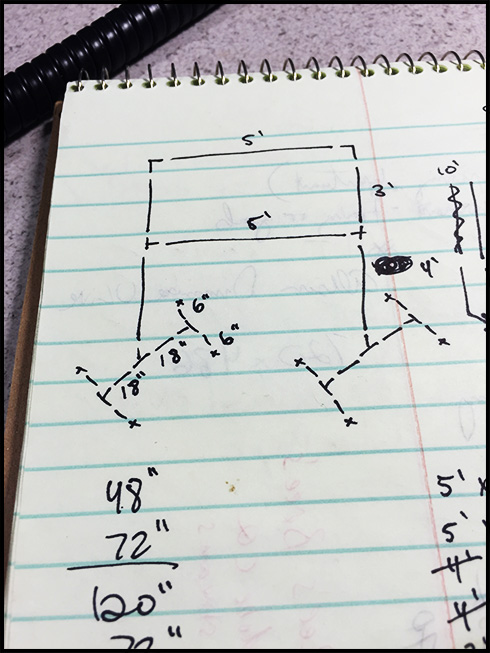 5'
10'
3'
5'
4'
6"
6"
18"
18"
48"
5'
72"
5'
120"
4'
4'
72"